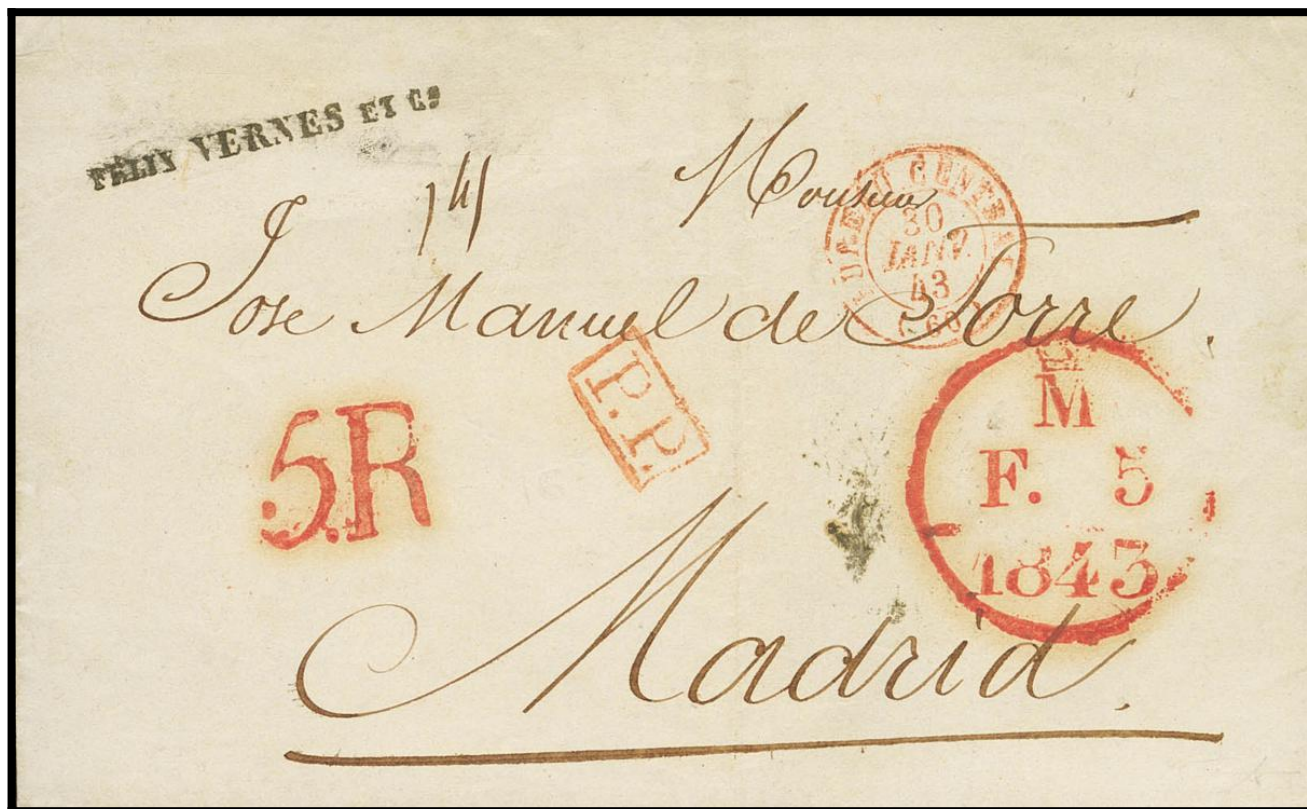 FÉLIX VERNES ET Cᵉ
Monsieur
BUREAU CENTRAL
30
JANV.
43
(60)
Jose Manuel de Torre.
5.R
P.P.
M
F. 5
1843
Madrid.